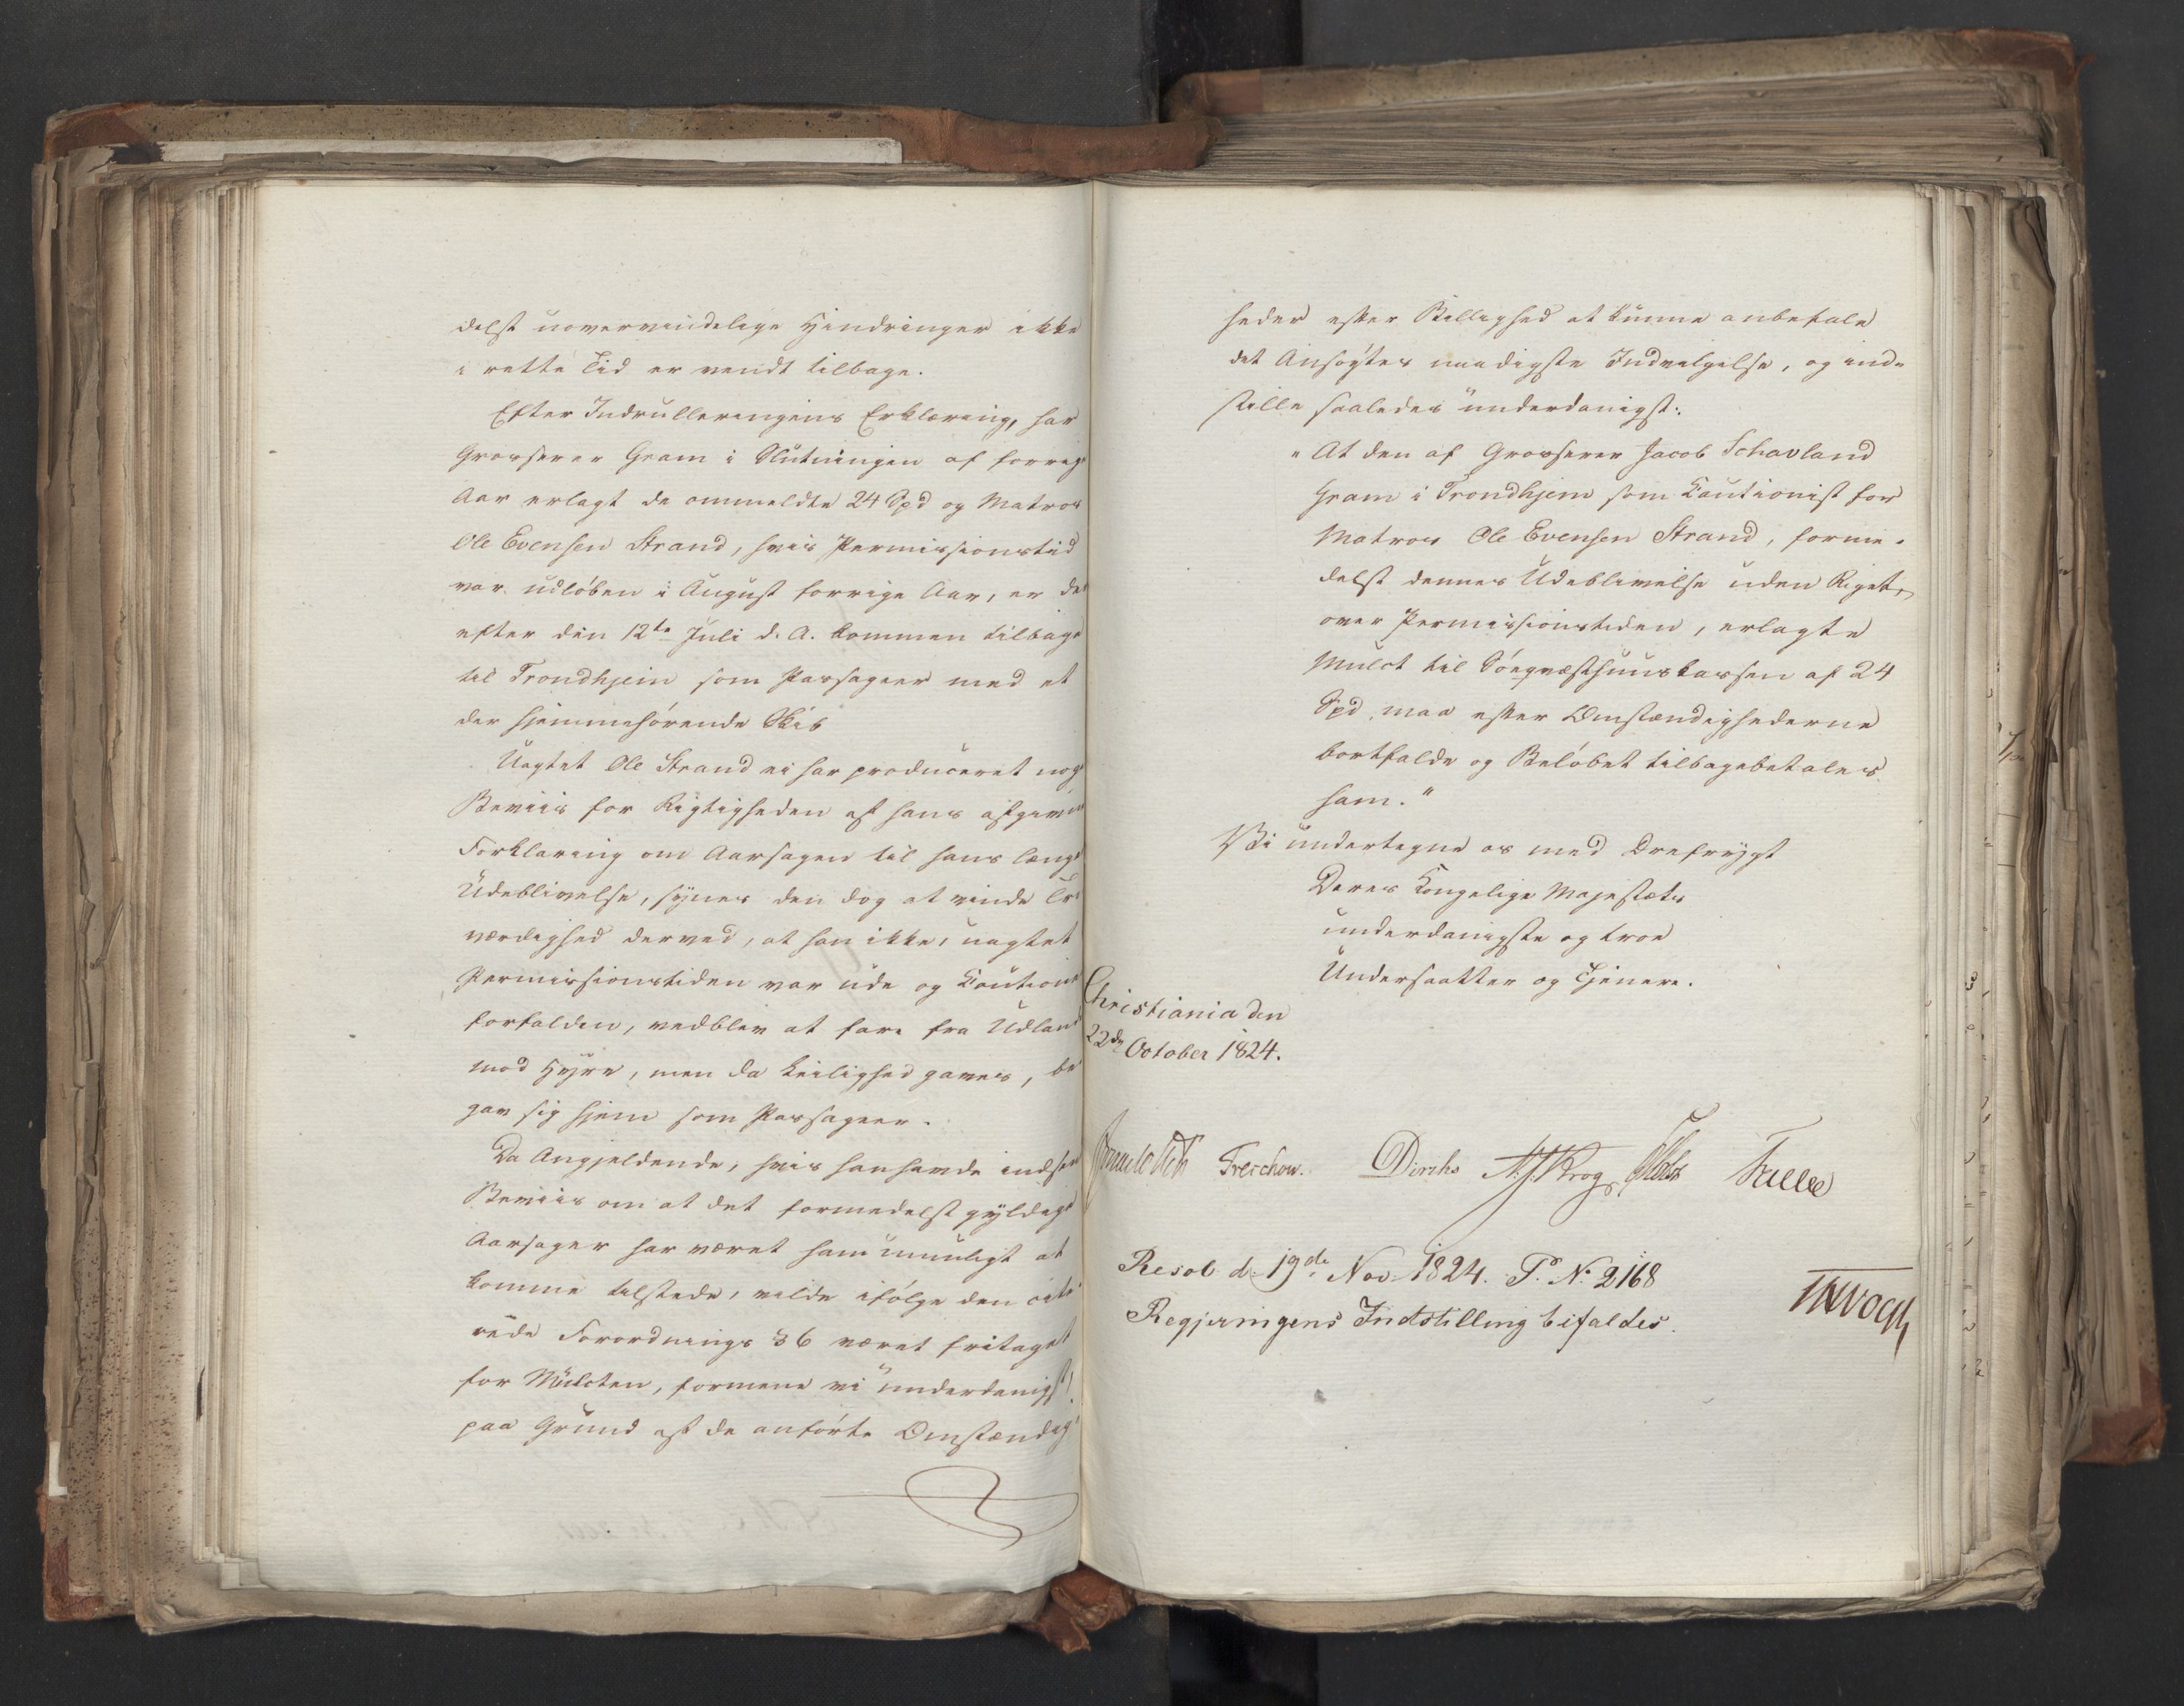 delst uovervindelige Hindringer ikke
i rette Tid er vendt tilbage.
Efter Indrulleringens Erklæring, har
Grosserer Gram i Slutningen af forrige
Aar erlagt de ommeldte 24 Spd og Matros
Ole Evensen Strand, hvis Permissionstid
var udløben i August forrige Aar, er der
efter den 12te Juli d. A. kommen tilbage
til Trondhjem som Passageer med et
der hjemmehørende Skib
Uagtet Ole Strand ei har produceret noget
Beviis for Rigtigheden af hans afgivne
Forklaring om Aarsagen til hans lange
Udeblivelse, synes den dog at vinde Tro
værdighed derved, at han ikke, uagtet
Permissionstiden var ude og Cautionen
forfalden, vedblev at fare fra Udlandet
mod Hyre, men da Leilighed gaves, be
gav sig hjem som Passageer.
Da Angjeldende, hvis han havde indsendt
Beviis om at det formedelst gyldige
Aarsager har været ham umuligt at
komme tilstede, vilde ifølge den citer
rede Forordnings § 6 været fritaget
for Mulcten, formene vi underdanigst,
paa Grund af de anførte Omstændig
heder efter Billighed at kunne anbefale
det Ansøgtes naadigste Indvilgelse, og ind-
stille saaledes underdanigst:
"At den af Grosserer Jacob Schavland
Gram i Trondhjem som Cautionist for
Matros Ole Evensen Strand, forme-
delst dennes Udeblivelse uden Riget,
over Permissionstiden, erlagte
Mulct til Søeqvæsthuuskassen af 24
Spd, maa efter Omstændighederne
bortfalde og Beløbet tilbagebetales
ham."
Vi undertegne os med Ærefrygt
Deres Kongelige Majestæts
underdanigste og troe
Undersaatter og Tjenere.
Christiania den
22de October 1824.
Treschow. Diriks Krog Falbe
Resol. d. 19de Nov. 1824. P. No 2168
Regjeringens Indstilling bifaldes.
Vogt